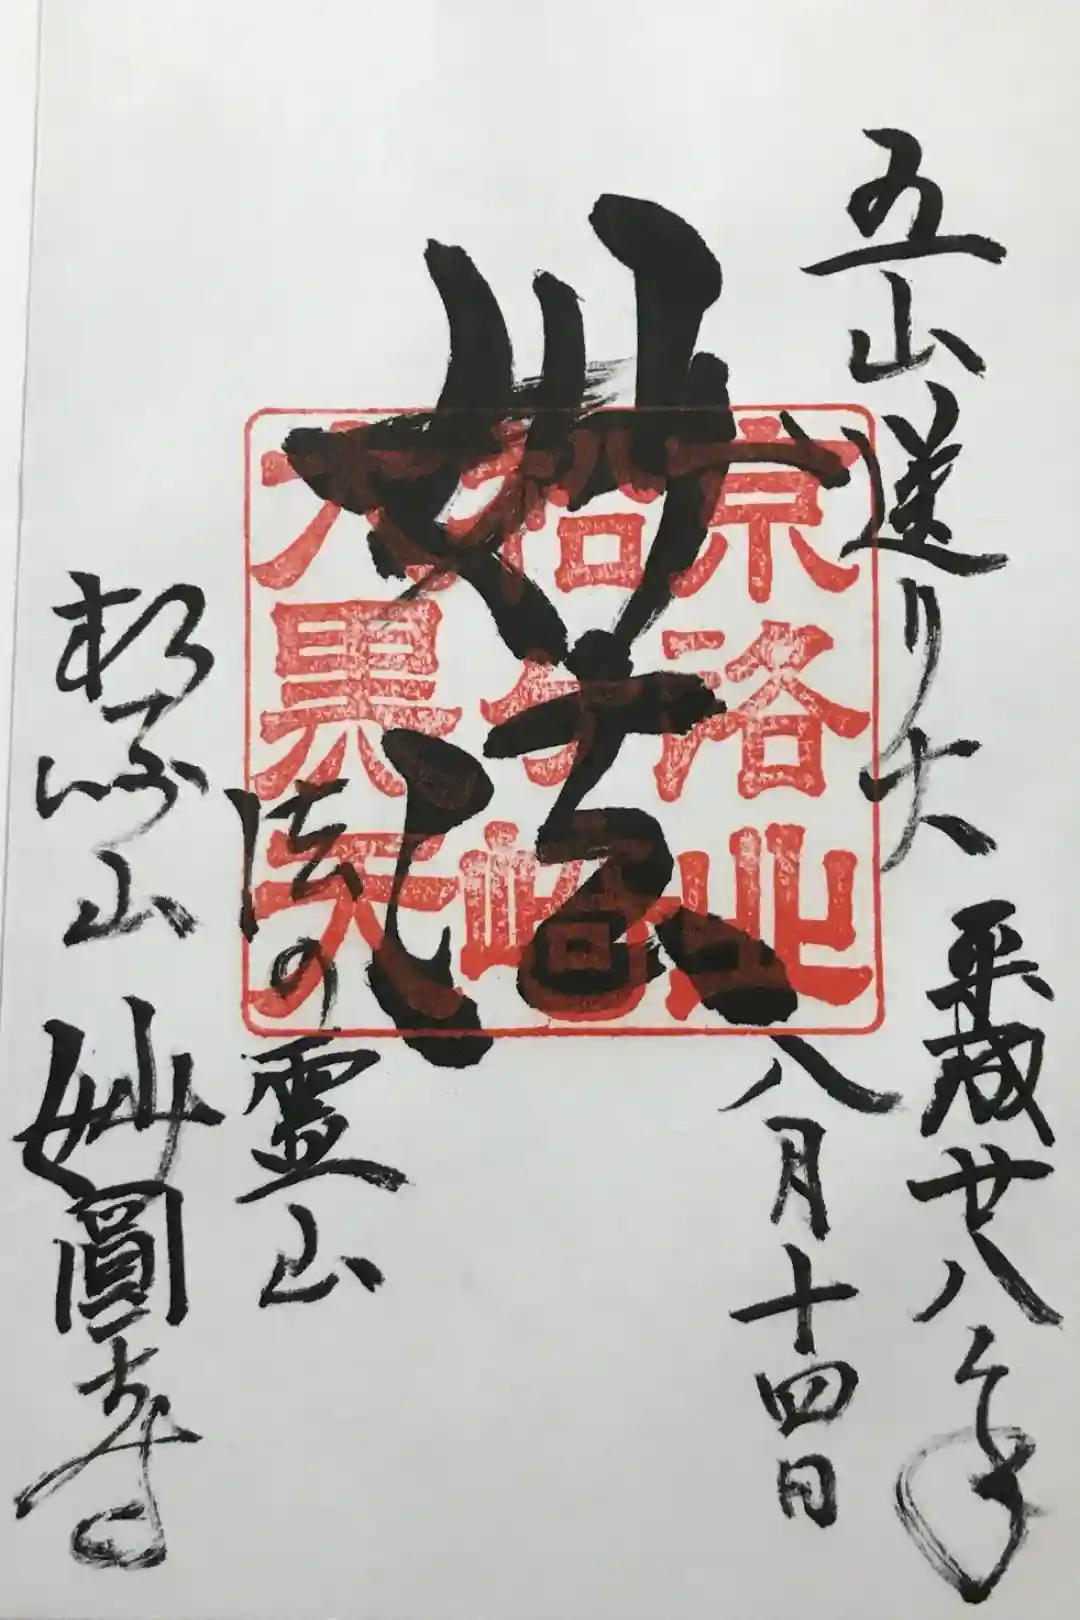 五山送り火
平成廿八年
八月十四日
妙法
京洛北
松ヶ崎
大黒天
法の
霊山
松崎山
妙圓寺